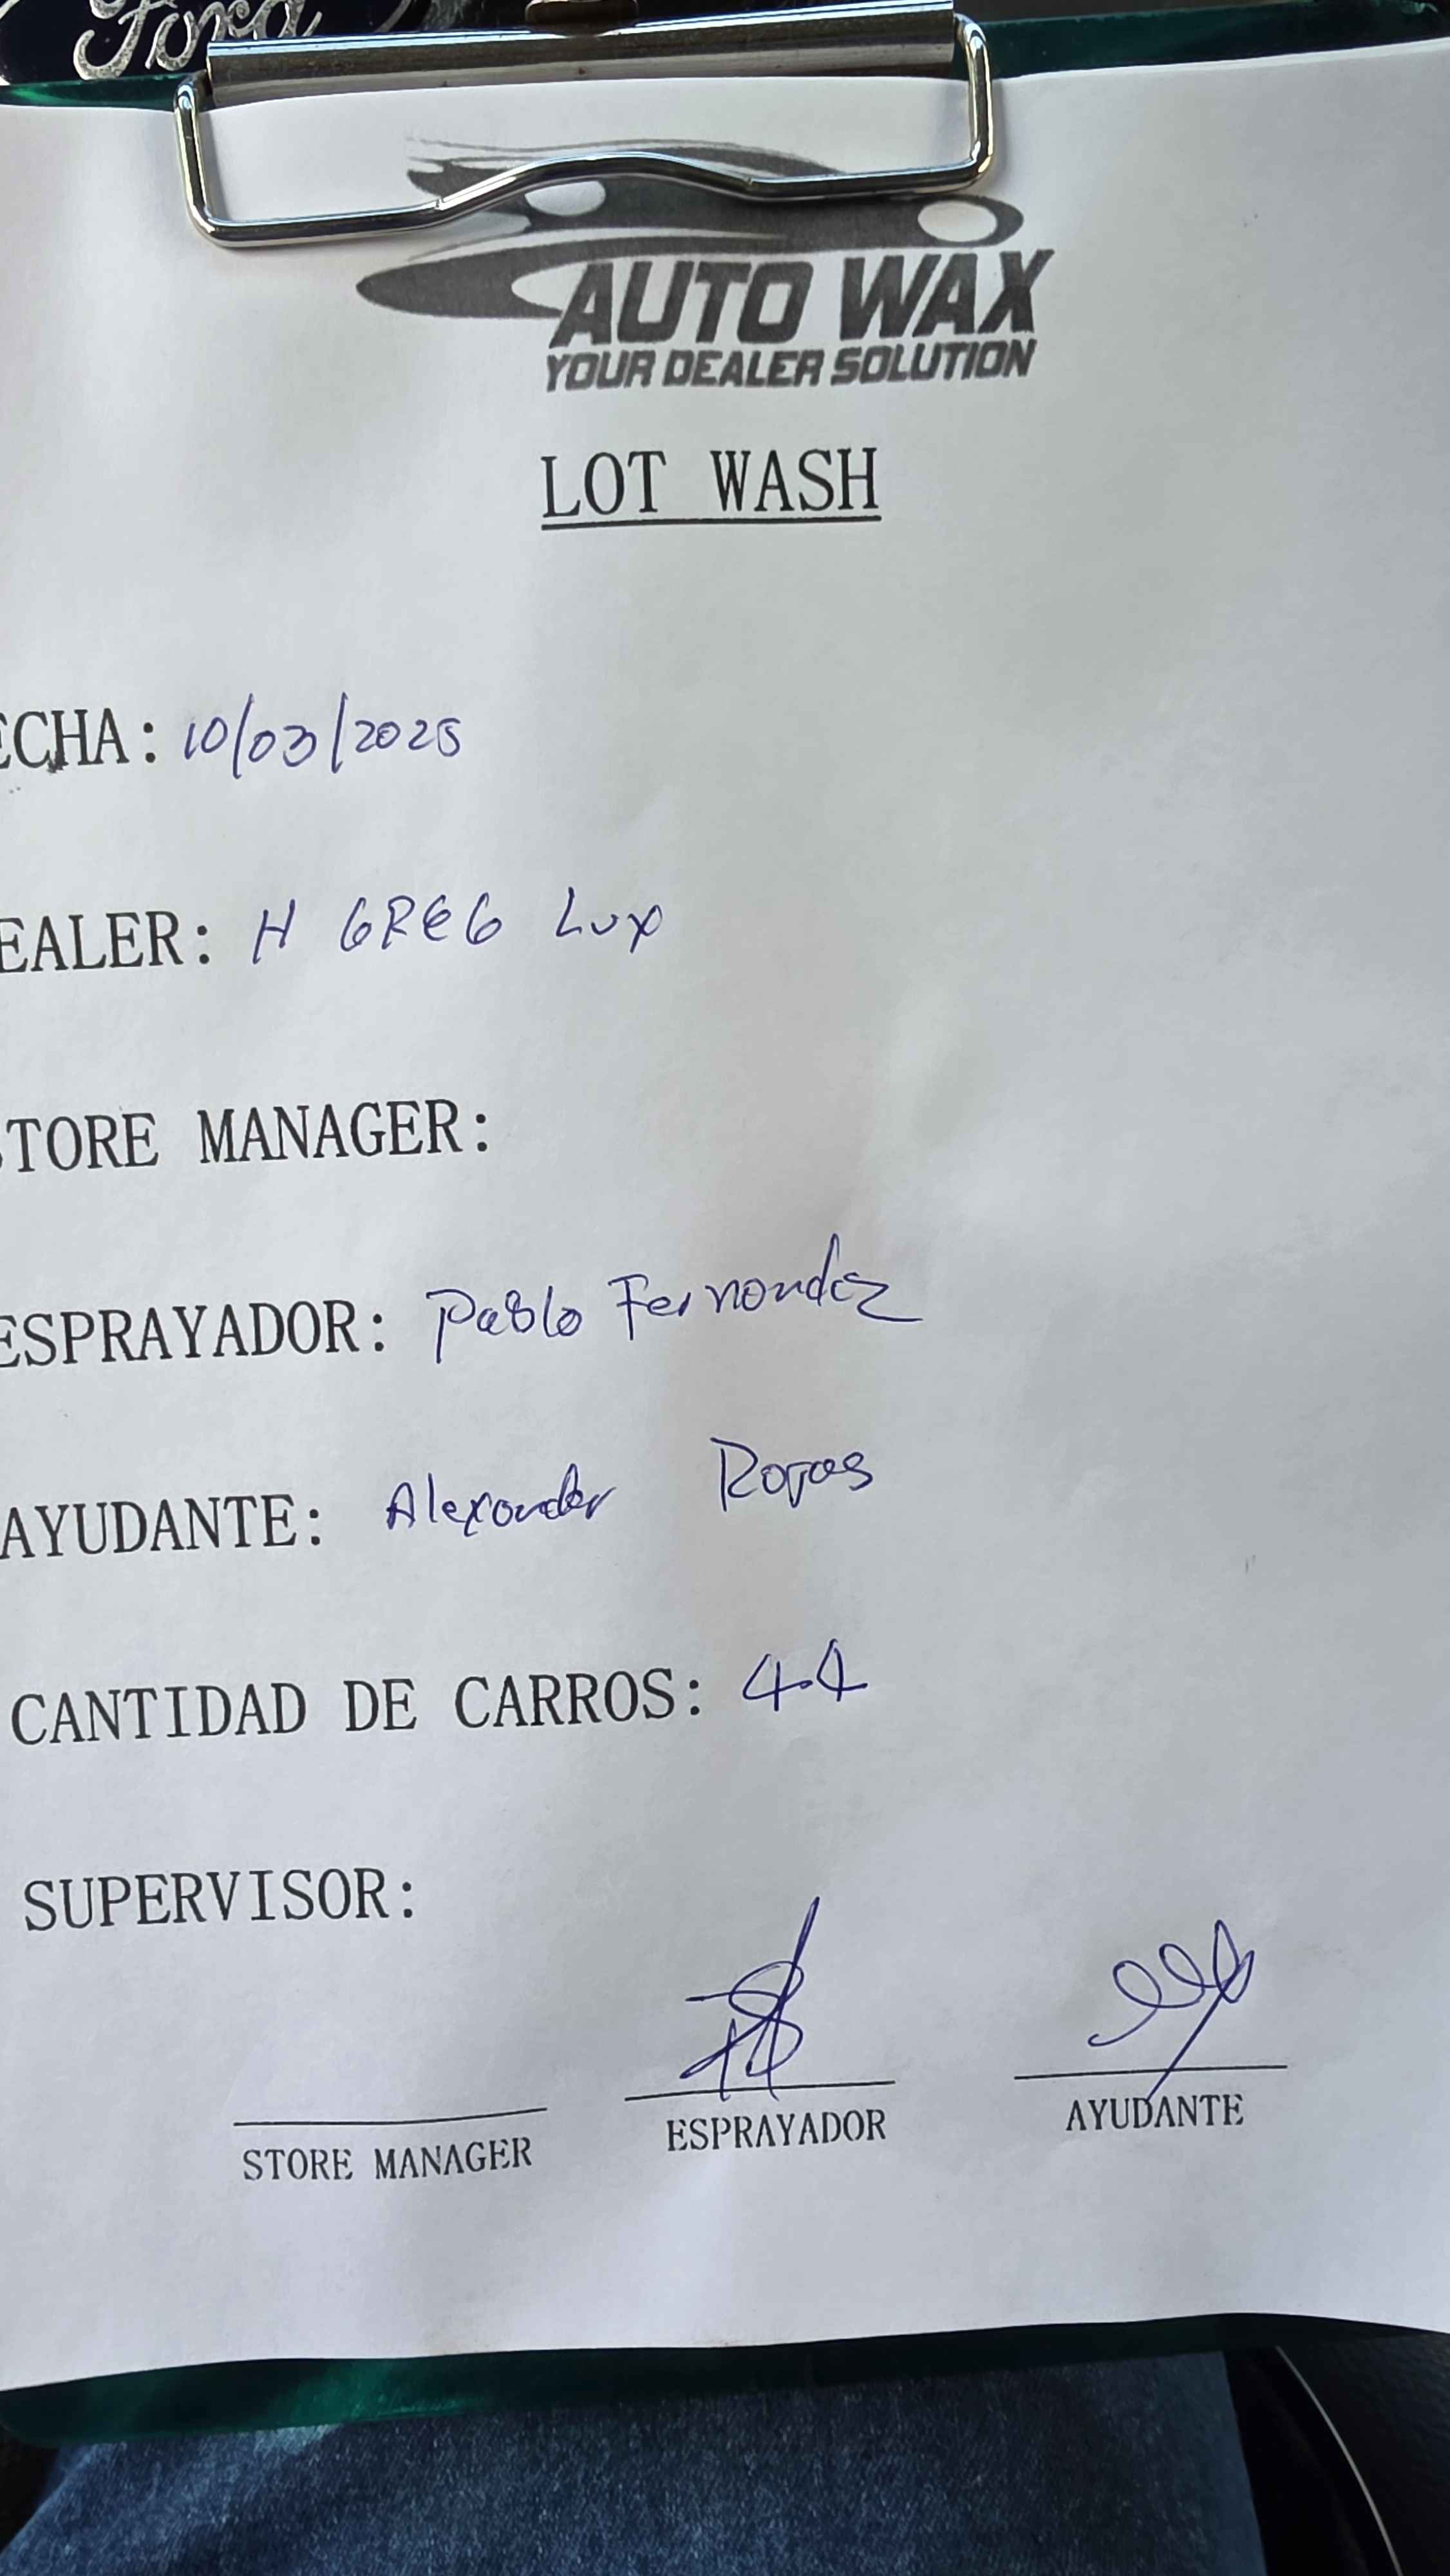 Ford
AUTO WAX
YOUR DEALER SOLUTION
LOT WASH
ECHA: 10/03/2025
EALER: H GREG Lux
STORE MANAGER:
ESPRAYADOR: Pablo Fernandez
AYUDANTE: Alexander Rojas
CANTIDAD DE CARROS: 44
SUPERVISOR:
STORE MANAGER ESPRAYADOR AYUDANTE